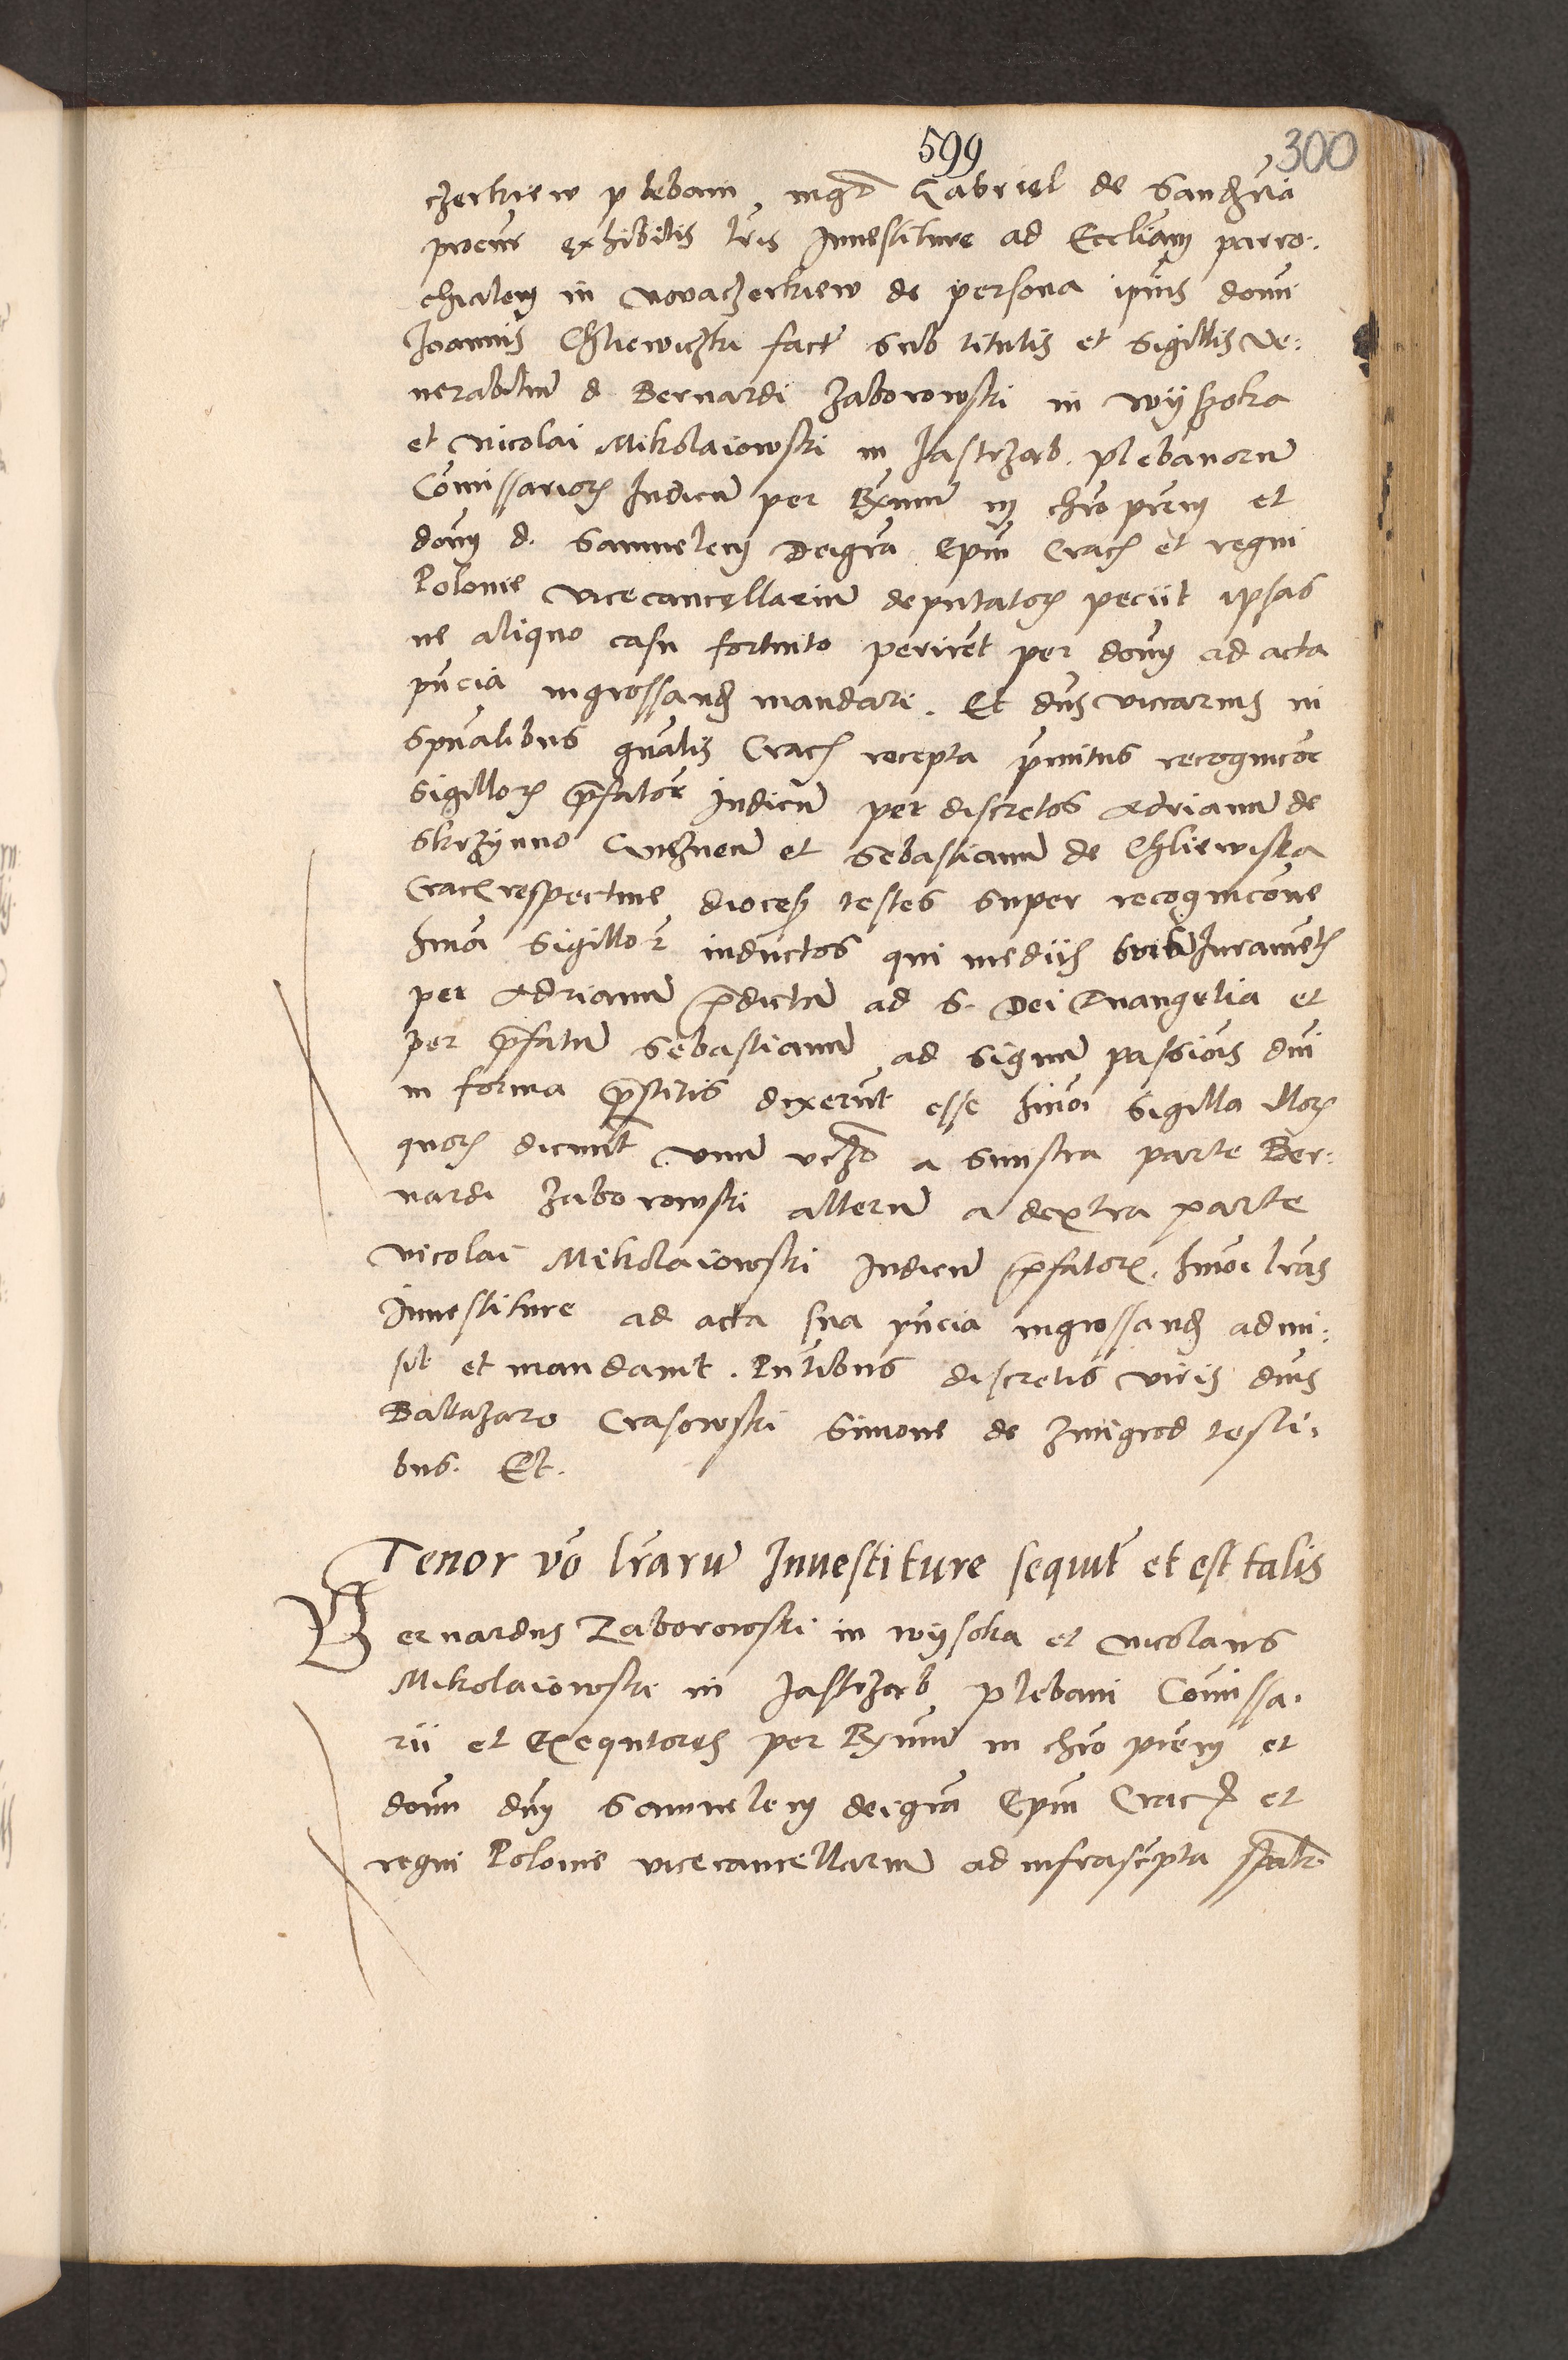 599
300
czerkiew plebani mgr Gabriel de Sandziia
procur exhibitis lris Inuestiture ad Eccliam parro:
chialem in Novaczerkiew de persona ipius domi
Joannis Chliewiczki fact sub titulis et sigillis Ve:
nerabilium d Bernardi Zaborowski in Wyszoka
et Nicolai Mikolaiowski in Jastrzab plebanorum
Comissarior Iudicum per Rxmum in chro prem et
dom d. Samuelem Dei gra Epum Crac et regni
Polonie Vicecancellarium deputator peciit ipsas
ne aliquo casu fortuito perirent per dom ad acta
pncia ingrossand mandari. Et dns vicarius in
spualibus gnalis Crac recepta prmitus recognicoe
sigillor prefator Iudicum per discretos Adrianum de
Skrzynno Gneznen et Sebastianum de Chliewiska
Crac respectiue dioces testes super recognicone
hmoi sigillor inductos qui mediis Iurament
per Adrianum predictum ad S. Dei Euangelia et
per prefatum Sebastianum ad signum passiois dni
in forma prestitis dixerunt esse hmoi sigilla illor
quor dicunt. Unum viz a sinistra parte Ber:
nardi Zaborowski alterum a dextra parte
Nicolai Mikolaiowski Iudicum prefator. hmoi lras
Inuestiture ad acta sua pncia ingrossand admi:
sit et mandauit. Pntibus discretis viris dnis
Baltazaro Crasowski Simone de Zmigrod testi:
bus. Et.
Tenor vo lrarum Inuestiture sequit et est talis
Bernardus Zaborowski in Wysoka et Nicolaus
Mikolaiowski in Jastrzab plebani Comissa:
rii et Exequtores per Rxmum in chro prem et
dom dnm Samuelem dei gra Epum Crac et
regni Polonie vicecancellarium ad infrascripta spalr